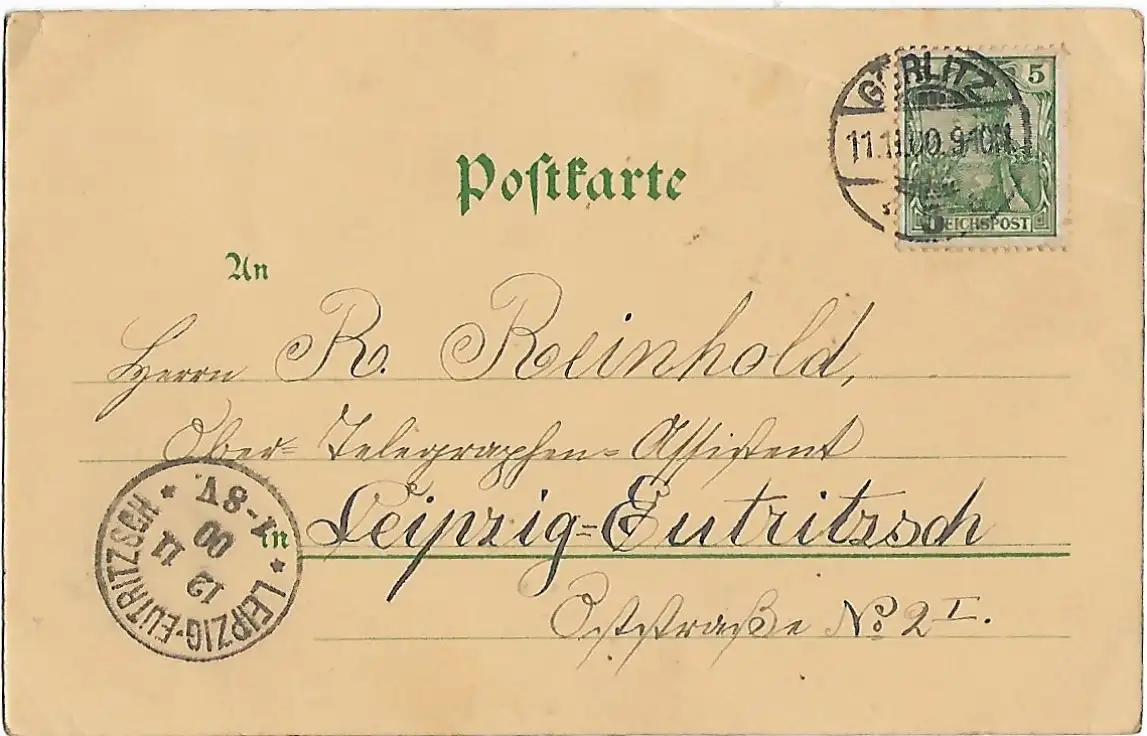 GÖRLITZ
11.11.00.9-10N.
5
REICHSPOST
Postkarte
An
Herrn R. Reinhold,
Ober-Telegraphen-Assistent
in Leipzig-Eutritzsch
Oststraße No. 2 I.
LEIPZIG-EUTRITZSCH
12
11
00
7-8V.